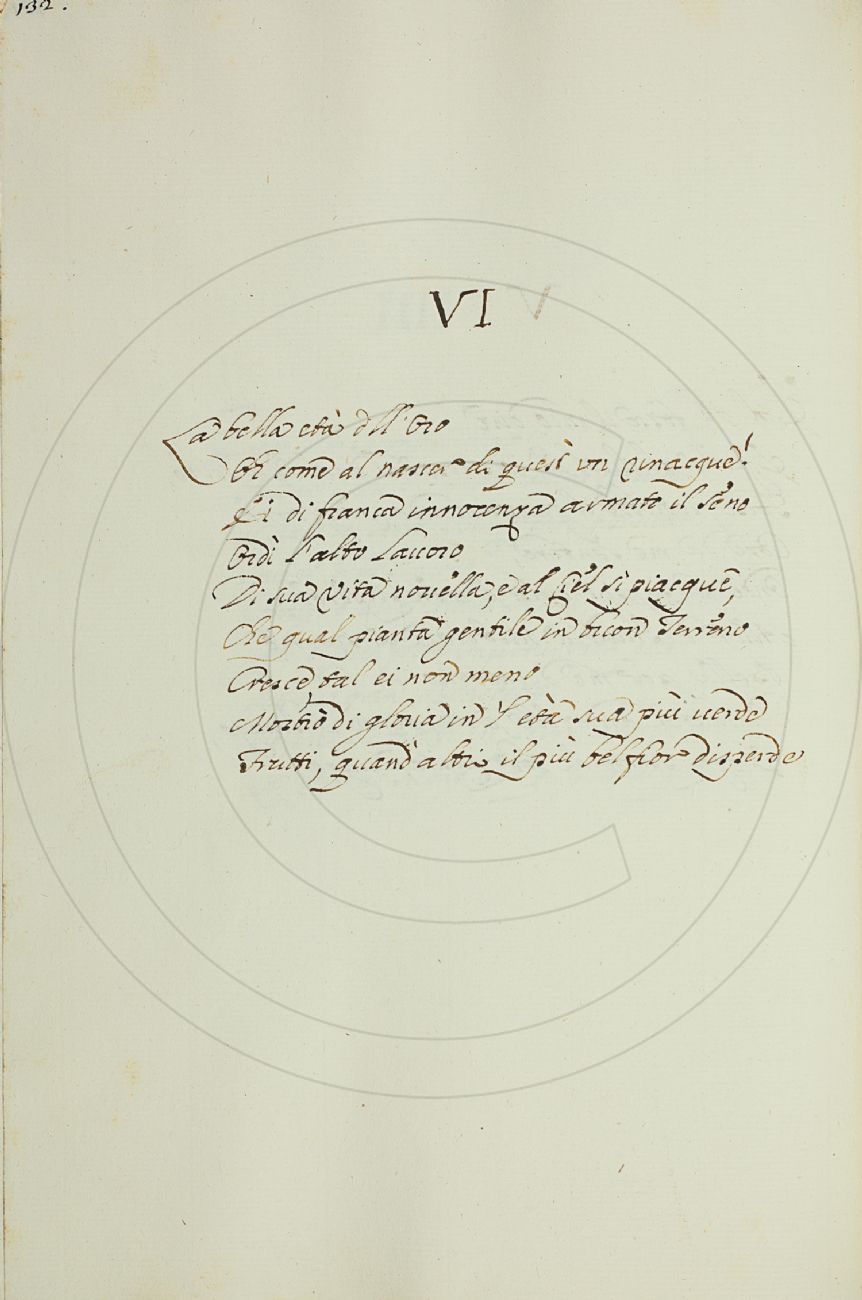 132.
VI
La bella età dell'Oro
Oh come al nascer di questi un rinacque!
Ei di franca innocenza armato il seno
Ordì l'alto Lavoro
Di sua vita novella, e al Ciel sì piacque,
Che qual pianta gentile in buon Terreno
Cresce tal ei non meno
Mostrò di gloria in l'età sua più verde
Frutti, quand'altri il più bel fior disperde